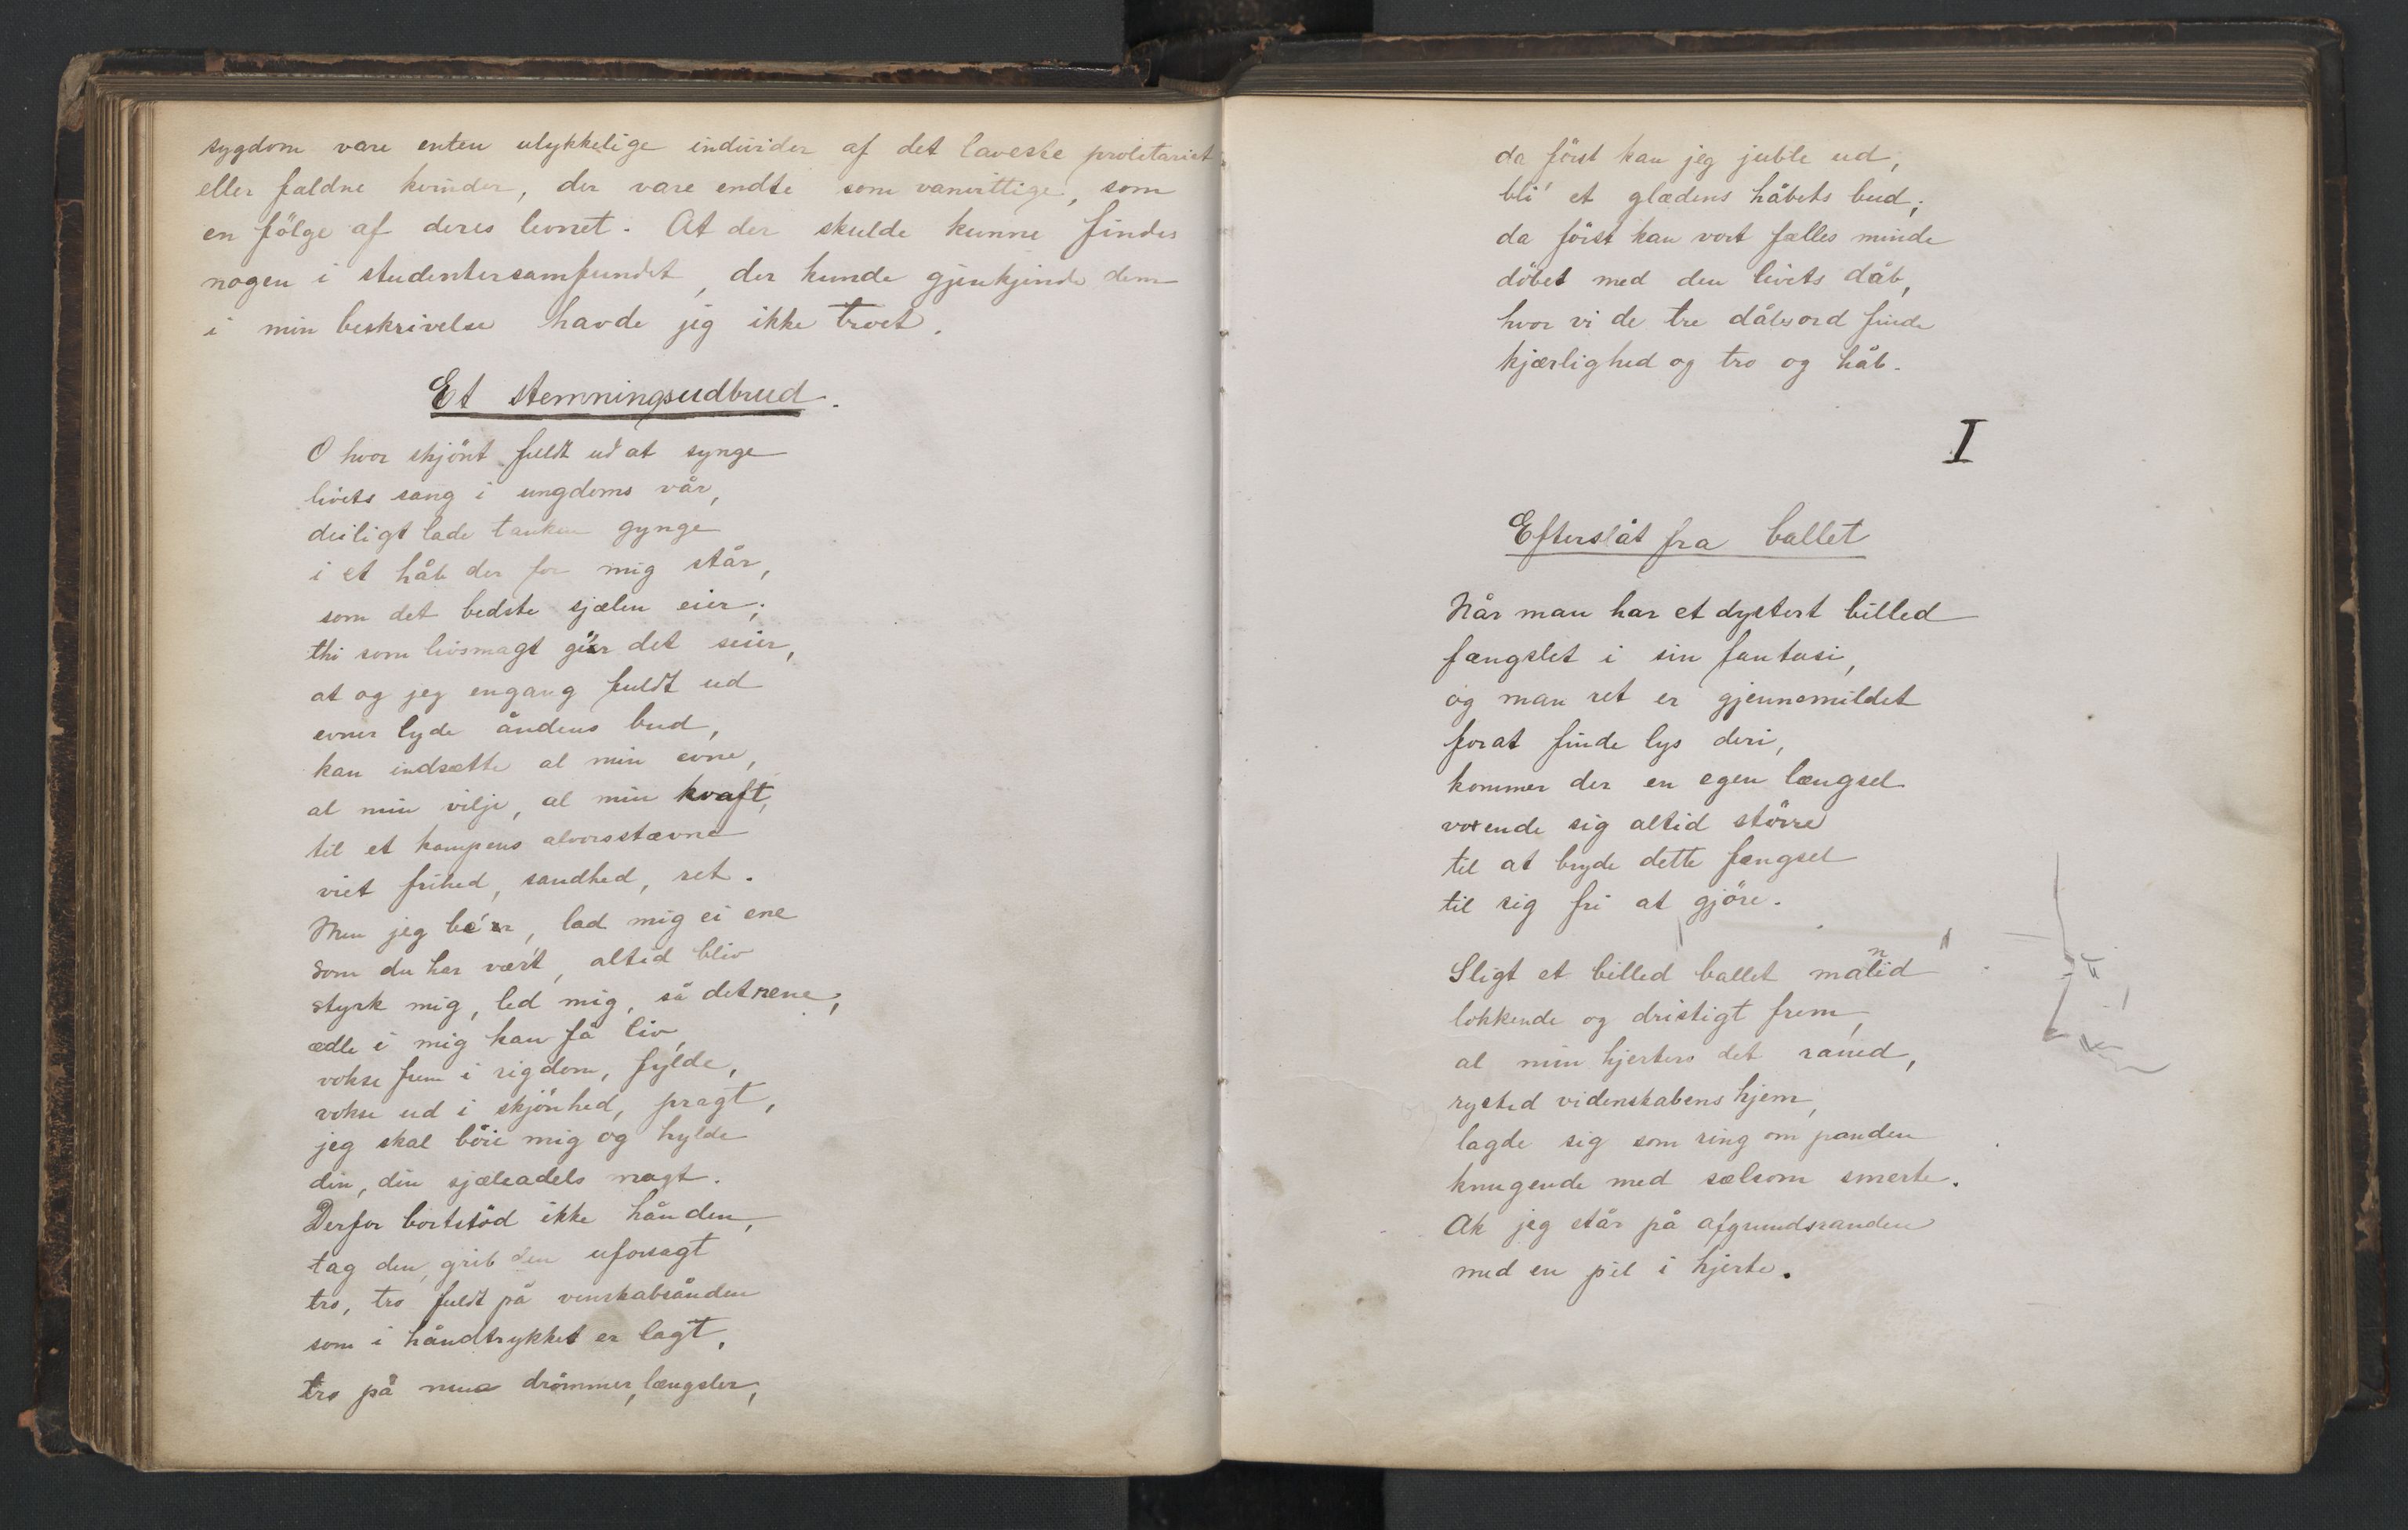 sygdom vare enten ulykkelige individer af det laveste proletariat
eller faldne kvinder, der vare endte som vanvittige, som
en fölge af deres levnet. At der skulde kunne findes
nogen i studentersamfundet, der kunde gjenkjende dem
i min beskrivelse havde jeg ikke troet.
Et stemningsudbrud.
O hvor skjönt fuldt ud at synge
livets sang i ungdoms vår,
deiligt lade tanken gynge
i et håb der for mig står,
som det bedste sjælen eier;
thi som livsmagt gier det seier,
at og jeg engang fuldt ud
evner lyde åndens bud,
kan indsætte al min evne,
al min vilje, al min kraft,
til et kampens alvorsstævne
viet frihed, sandhed, ret.
Men jeg be'er, lad mig ei ene
som du har vært, altid bliv
styrk mig, led mig, så det rene,
ædle i mig kan få liv,
vokse frem i rigdom, fylde,
vokse ud i skjönhed, pragt,
jeg skal böie mig og hylde
din, din sjæleadels magt.
Derfor bortstöd ikke hånden,
tag den, grib den uforsagt
tro, tro fuldt på venskabsånden
som i håndtrykket er lagt,
tro på mine drömmer, længsler,
da först kan jeg juble ud,
bli' et glædens håbets bud;
da först kan vort fælles minde
döbet med den livets dåb,
hvor vi de tre dåbsord finde
kjærlighed og tro og håb.
I
Efterslåt fra ballet
Når man har et dystert billed
fængslet i sin fantasi,
og man ret er gjennemildet
forat finde lys deri,
kommer der en egen længsel
voxende sig altid större
til at bryde dette fængsel
til sig fri at gjöre.
Sligt et billed ballet malid
lokkende og dristigt frem,
al min hjertero det raned,
rysted videnskabens hjem,
lagde sig som ring om panden
knugende med sælsom smerte.
Ak jeg står på afgrundsranden
med en pil i hjerte.